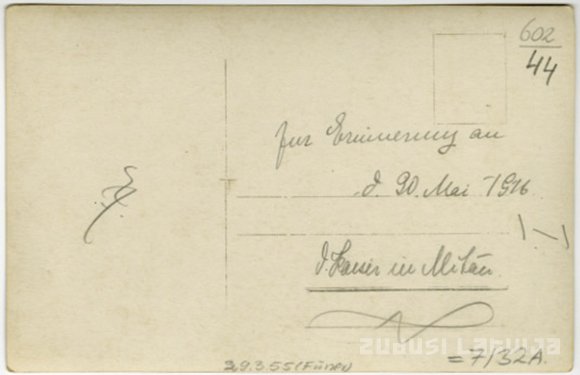 602
44
zur Erinnerung an
d. 30. Mai 1916.
d. Kaiser in Mitau.
29.3.55
=7/32A.
ZUDUSI LATVIJA